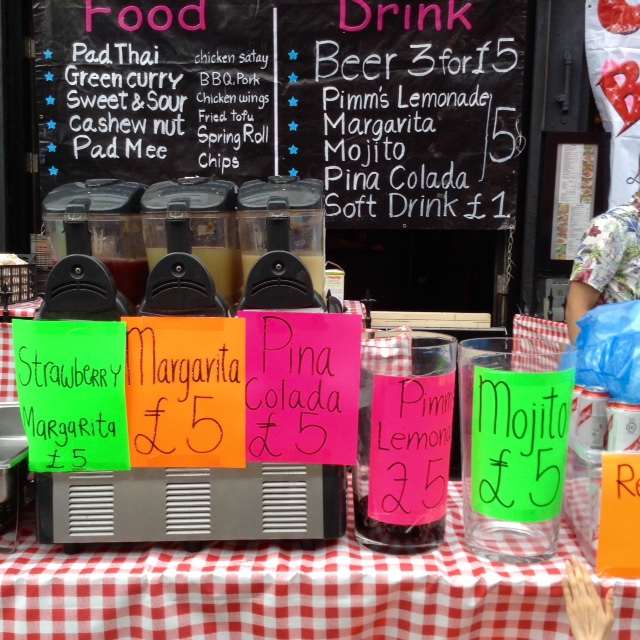 Food
Pad Thai
Green curry
Sweet & Sour
Cashew nut
Pad Mee
chicken satay
B B Q. Pork
Chicken wings
Fried tofu
Spring Roll
Chips
Drink
Beer 3 for £5
Pimm's Lemonade
Margarita
Mojito
Pina Colada
5
Soft Drink £1
Strawberry
Margarita
£5
Margarita
£5
Pina
Colada
£5
Pimm
Lemon
£5
Mojito
£5
Re